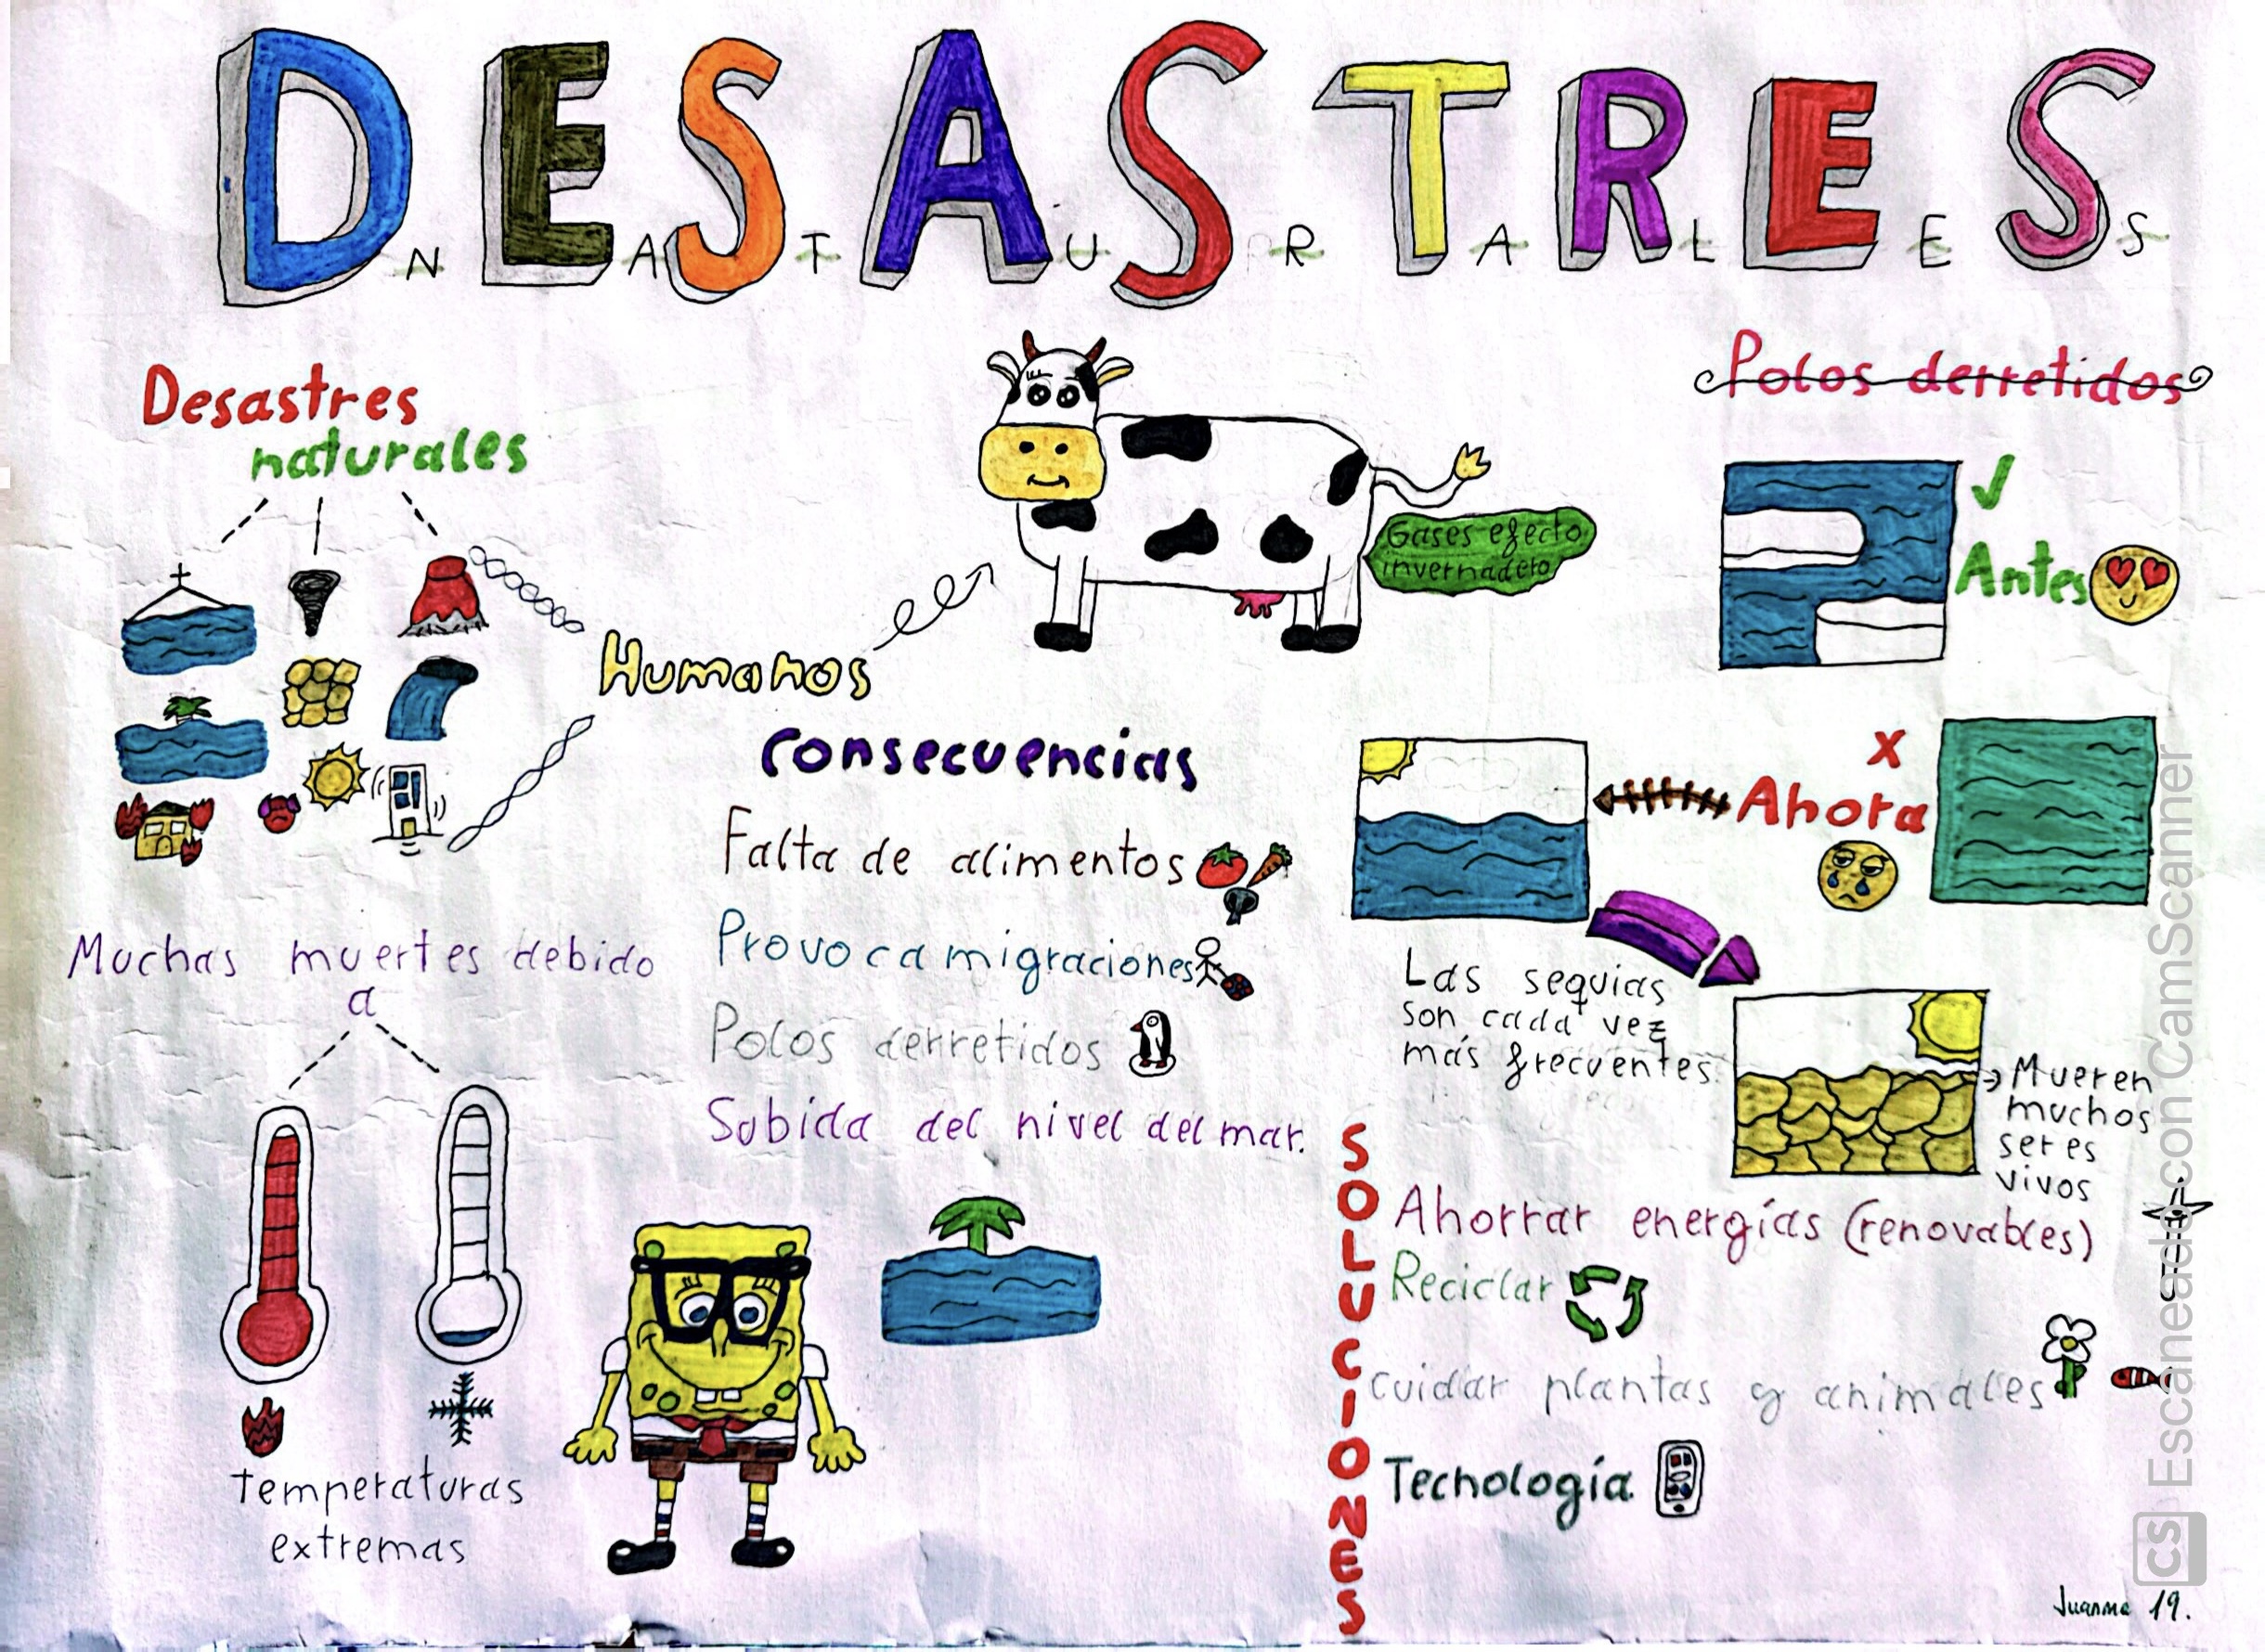 DESASTRES
NATURALES
Desastres
naturales
Humanos
Gases efecto
invernadero
Polos derretidos
Antes
Ahora
x
Consecuencias
Falta de alimentos
Provoca migraciones
Polos derretidos
Subida del nivel del mar.
Muchas muertes debido
a
Temperaturas
extremas
Las sequias
son cada vez
más frecuentes.
Mueren
muchos
seres
vivos
SOLUCIONES
Ahorrar energías (renovables)
Reciclar
cuidar plantas y animales
Tecnología
Juanma 19.
CS Escaneado con CamScanner